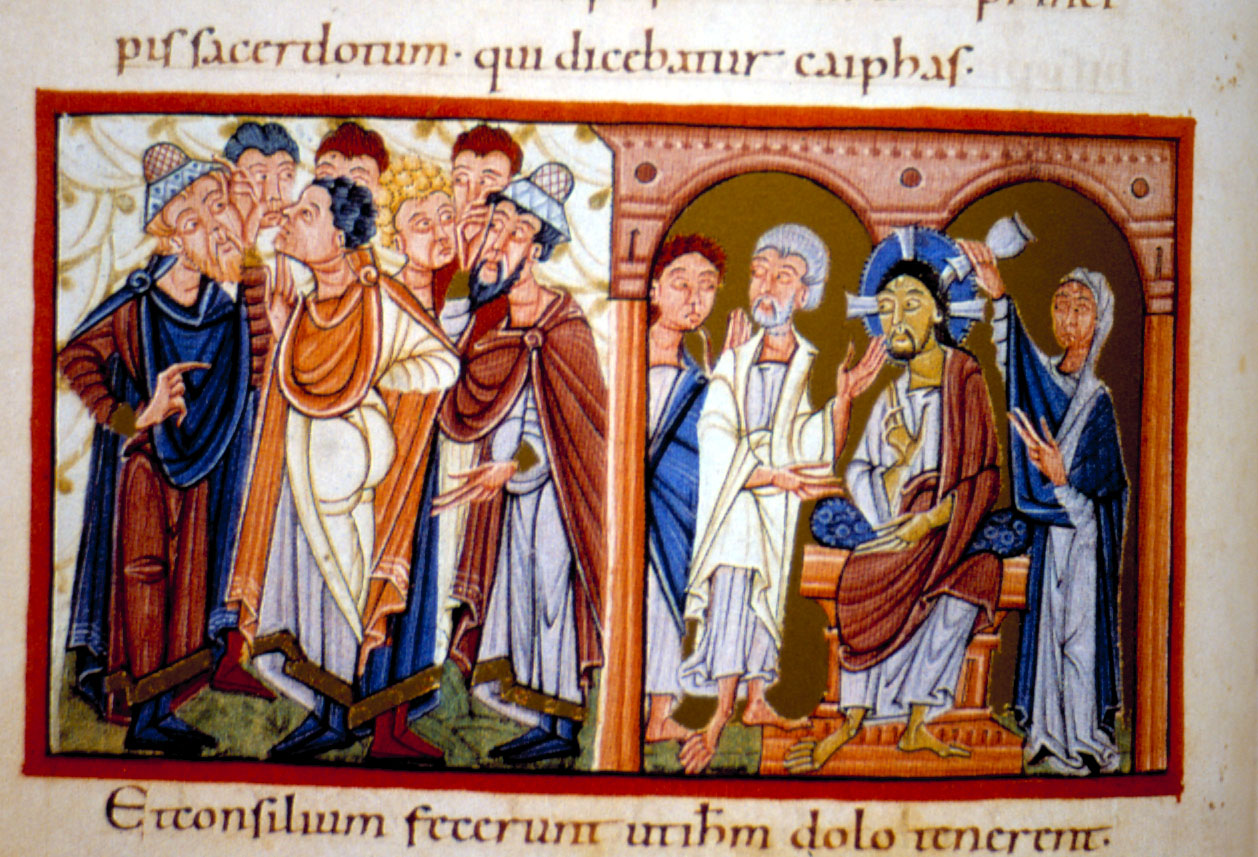 princi
pis sacerdotum· qui dicebatur caiphas·
Et consilium fecerunt ut ih̄m dolo tenerent·